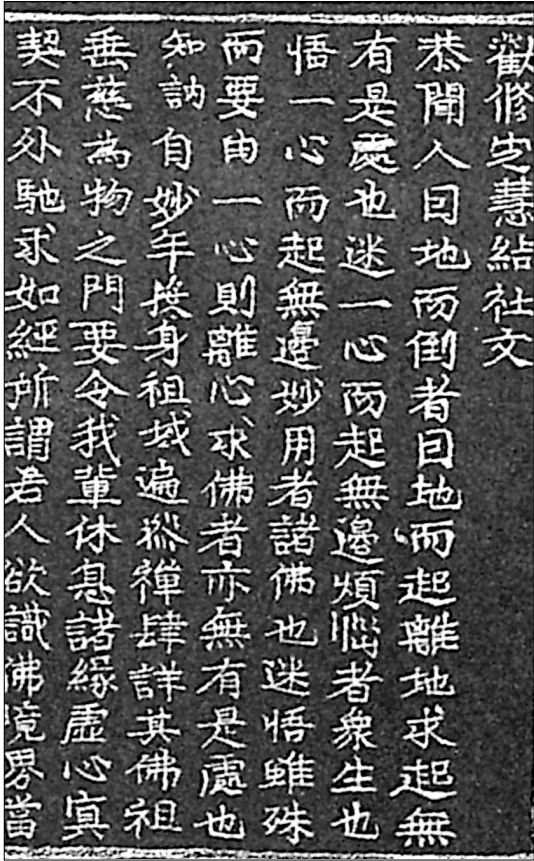 勸修定慧結社文
恭聞人因地而倒者因地而起離地求起無
有是處也迷一心而起無邊煩惱者衆生也
悟一心而起無邊妙用者諸佛也迷悟雖殊
而要由一心則離心求佛者亦無有是處也
知訥自妙年投身祖域遍叅禪肆詳其佛祖
垂慈為物之門要令我輩休息諸緣虛心冥
契不外馳求如經所謂若人欲識佛境界當